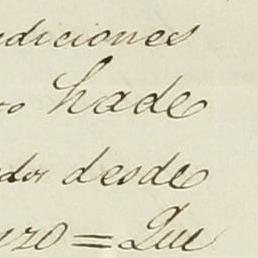 ndiciones
to hade
dos desde
rzo = Que